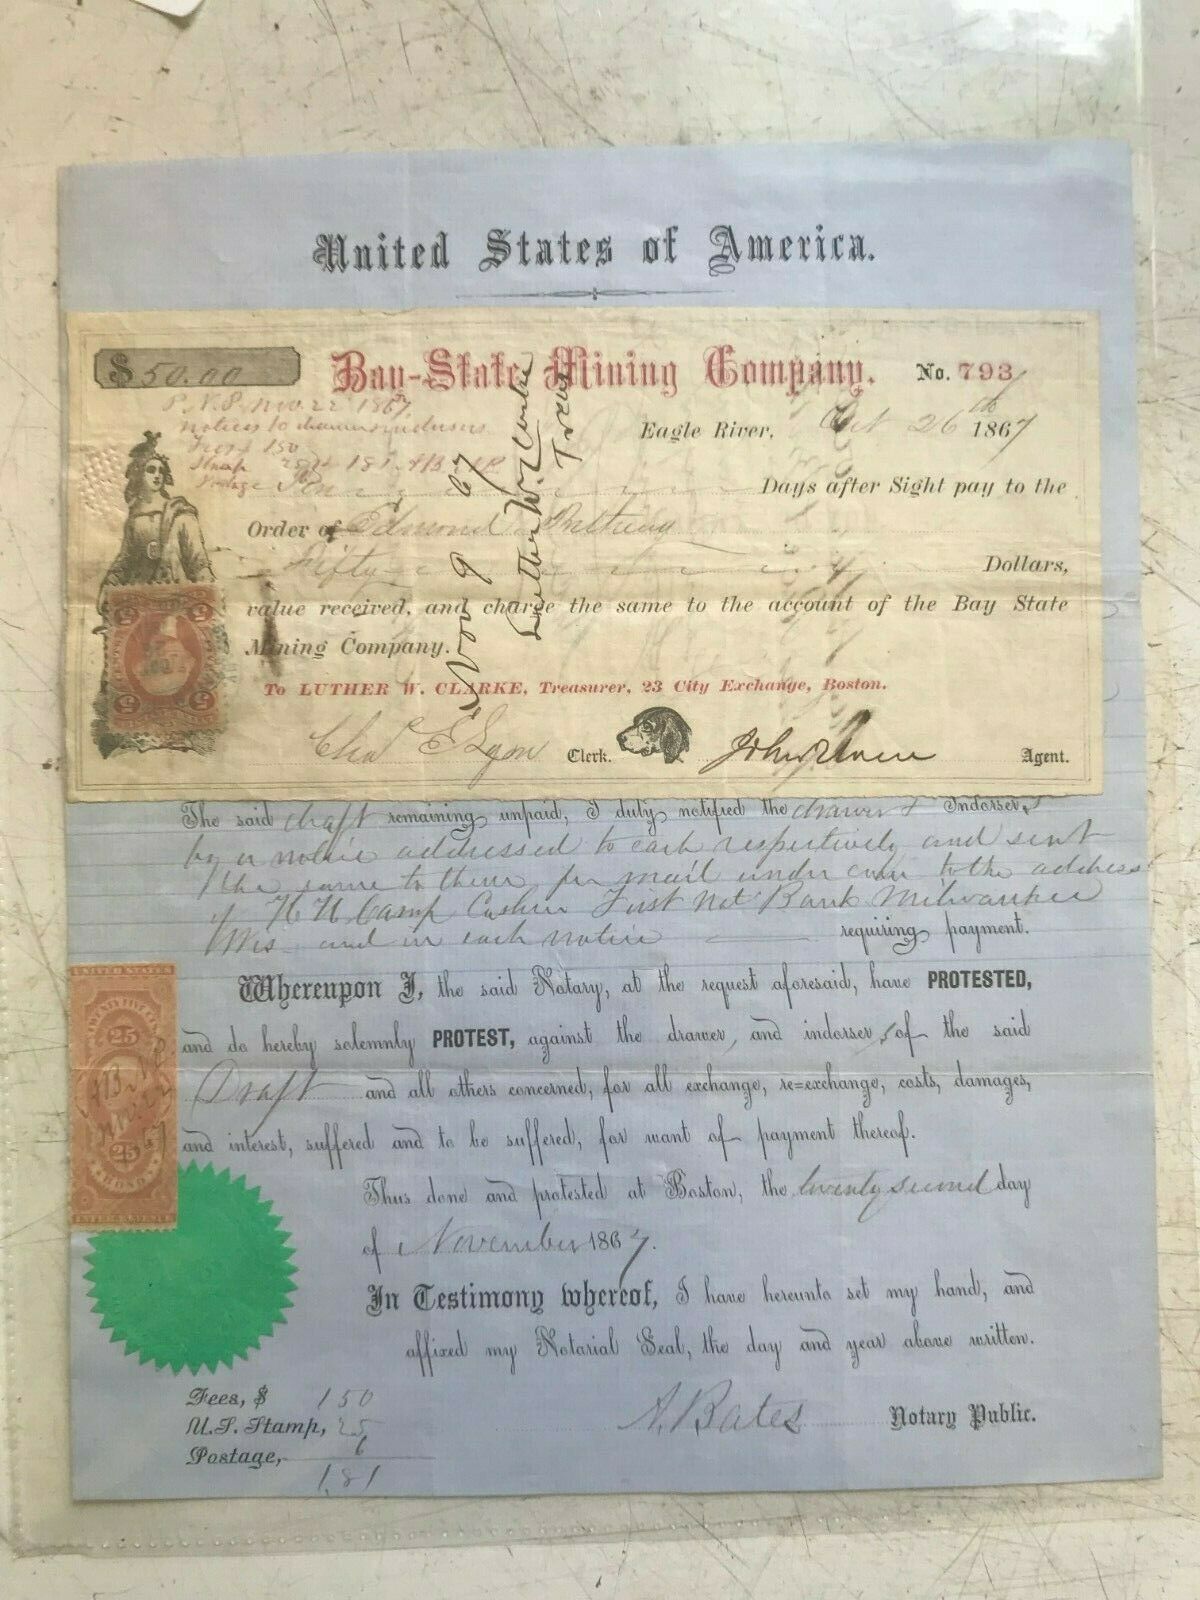 United States of America.
$50.00
Bay-State Mining Company.
No. 793
P. N. P. Nov. 22 1867
Notices to drawer & indorsers
150
Stamp 25
Postage
Eagle River, Oct 26th 1867
Ten Days after Sight pay to the
Order of Edmond
Fifty Dollars,
value received, and charge the same to the account of the Bay State
Mining Company.
To LUTHER W. CLARKE, Treasurer, 23 City Exchange, Boston.
Chas E Lyon Clerk.
Agent.
Nov 9 67
Luther W. Clarke
Treas
5 5
5 CENTS 5
The said draft remaining unpaid, I duly notified the drawer & Indorsers
by a notice addressed to each respectively and sent
the same to them per mail under cover to the address
of H H Camp Cashier First Nat Bank Milwaukee
Wis and in each notice requiring payment.
Whereupon I, the said Notary, at the request aforesaid, have PROTESTED,
and do hereby solemnly PROTEST, against the drawer, and indorsers of the said
Draft and all others concerned, for all exchange, re=exchange, costs, damages,
and interest, suffered and to be suffered, for want of payment thereof.
Thus done and protested at Boston, the twenty second day
of November 1867.
In Testimony whereof, I have hereunto set my hand, and
affixed my Notarial Seal, the day and year above written.
UNITED STATES
TWENTY FIVE
25
AB N.P.
Nov. 22
67
25
BOND
INTER. REVENUE
Fees, $ 150
U.S. Stamp, 25
Postage, 6
1,81
A. Bates Notary Public.